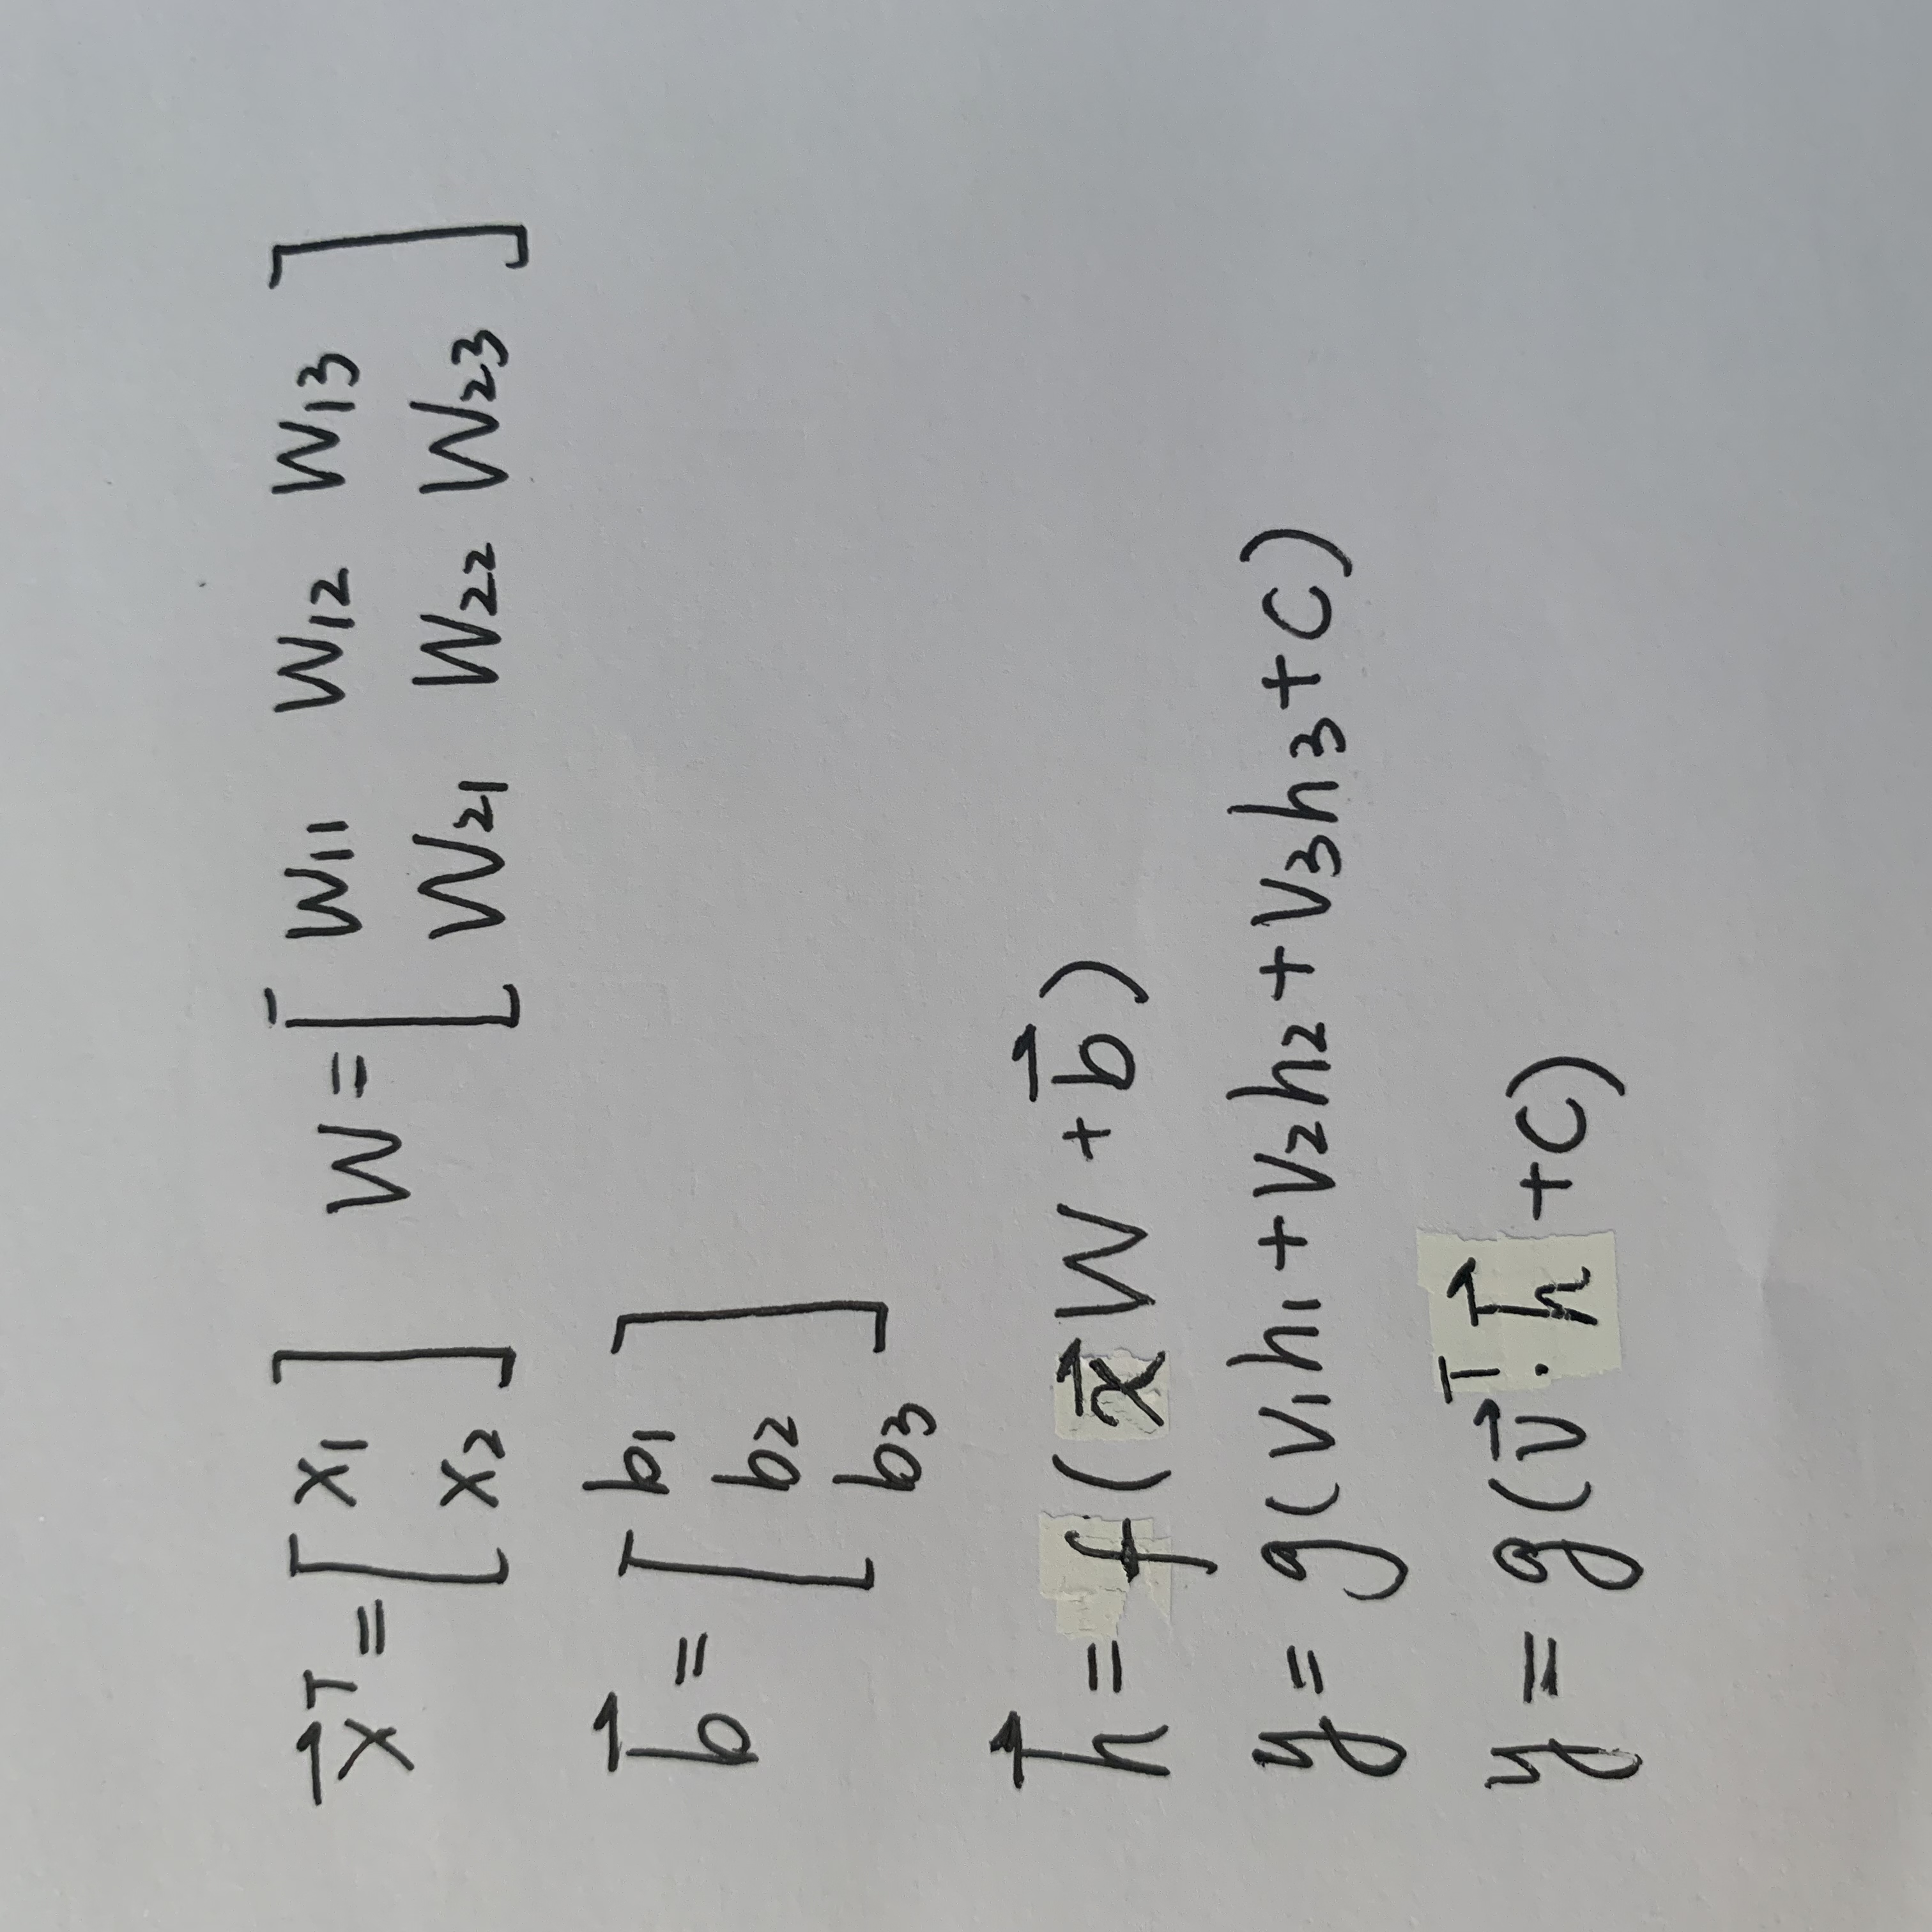 x⃗ᵀ = [ x₁ x₂ ] W = [ W₁₁ W₁₂ W₁₃
W₂₁ W₂₂ W₂₃ ]
b⃗ = [ b₁
b₂
b₃ ]
h⃗ = f( x⃗ W + b⃗ )
y = g( v₁h₁ + v₂h₂ + v₃h₃ + c )
y = g( v⃗ᵀ · h⃗ + c )